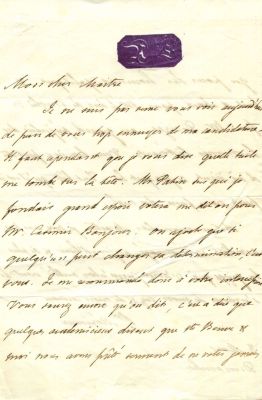 Mon cher Maître
Je ne suis pas venu vous voir aujourd'hui
de peur de vous trop ennuyer de ma candidature.
Il faut cependant que je vous dise quelle tuile
me tombe sur la tête. Mr Patin sur qui je
fondais grand espoir votera me dit on pour
Mr Casimir Bonjour. On ajoute que si
quelqu'un peut changer sa détermination, c'est
vous. Je me recommande donc à votre
Vous saurez encore qu'on dit, c'est à dire que
quelques académiciens disent que Ste Beuve &
moi nous avons prêté serment de ne voter jamais